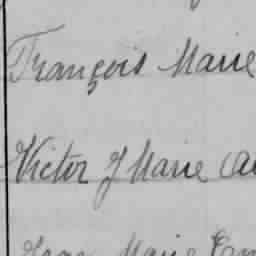 François Marie
Victor J Marie
Marie Em